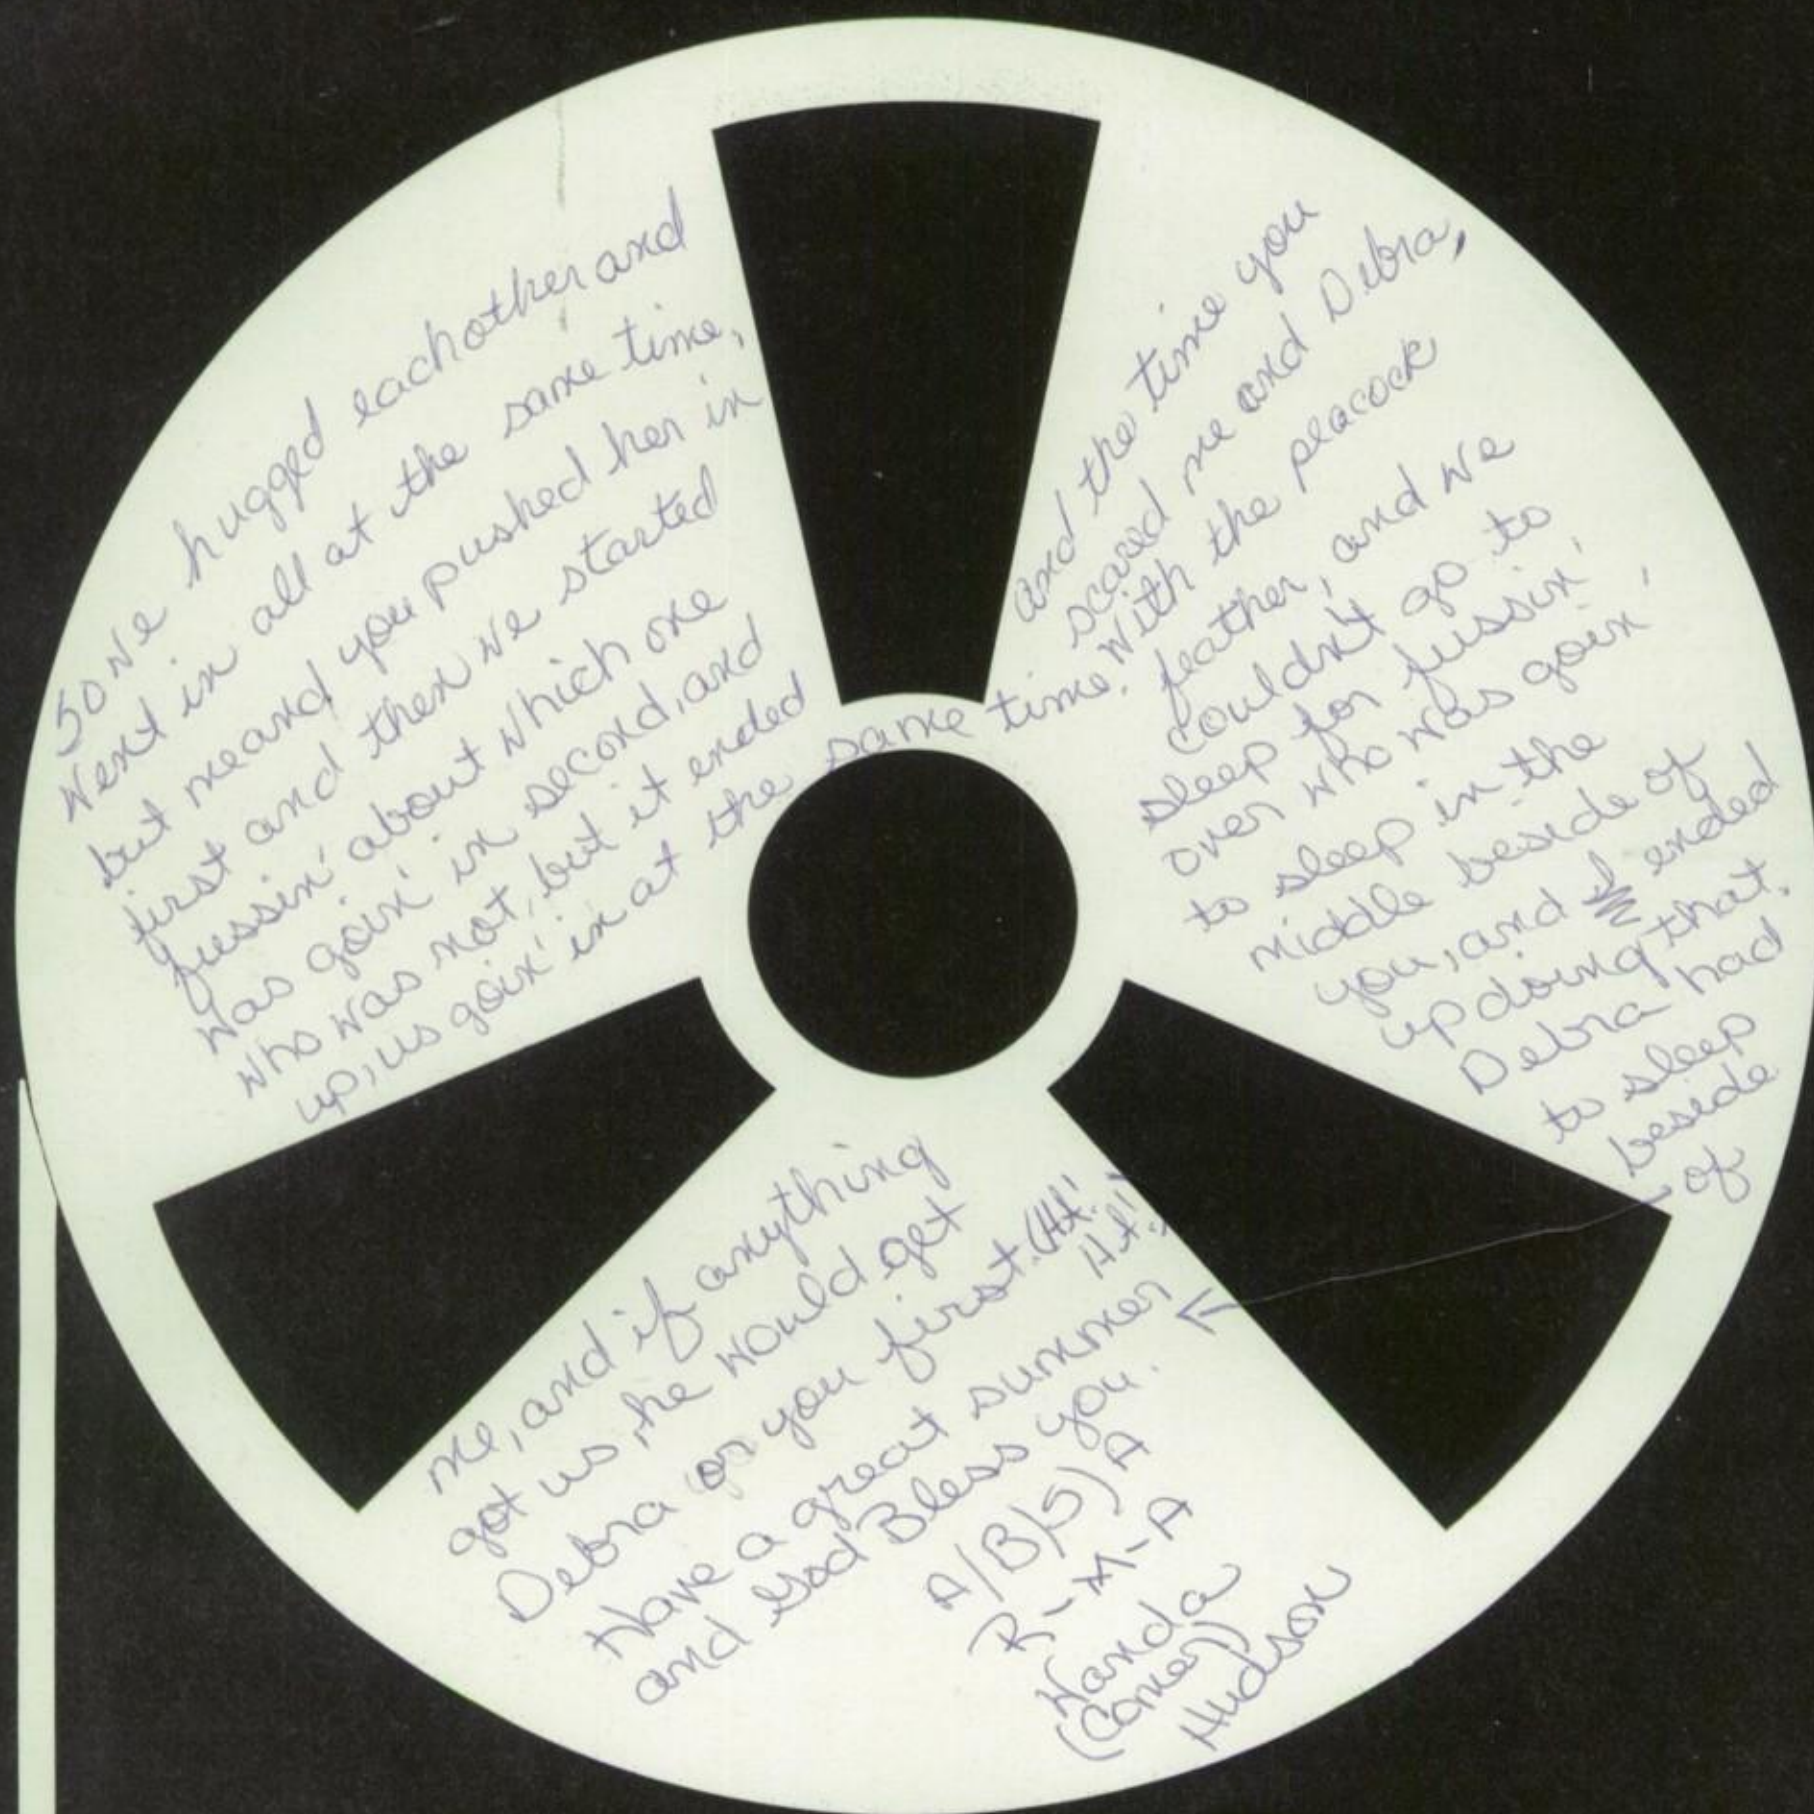 So we hugged eachother and
went in all at the same time,
but me and you pushed her in
first and then we started
fussin' about which one
was goin' in second, and
who was not, but it ended
up, us goin' in at the same time.
and the time you
scared me and Debra,
With the peacock
feather, and we
couldn't go to
sleep for fussin',
over who was goin'
to sleep in the
middle beside of
you, and I ended
up doing that.
Debra had
to sleep
beside
of
me, and if anything
got us, he would get
Debra or you first. (Ha!
Ha!)
Have a great summer
and God Bless you.
A/B/S/A
R-M-A
Wanda
Hudson